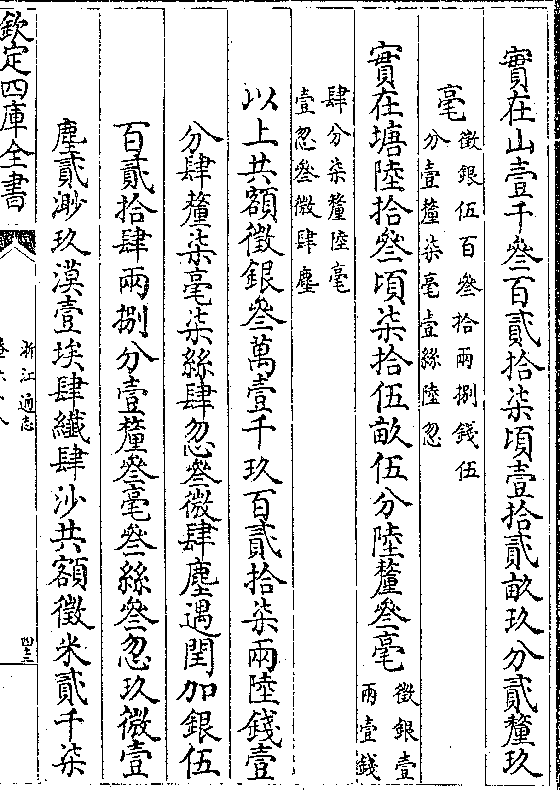 實在山壹千叁百貳拾柒頃壹拾貳畝玖分貳釐玖
毫
徵銀伍百叁拾兩捌錢伍
分壹釐柒毫壹絲陸忽
實在塘陸拾叁頃柒拾伍畝伍分陸釐叁毫
徵銀壹
兩壹錢
肆分柒釐陸毫
壹忽叁微肆塵
以上共額徵銀叁萬壹千玖百貳拾柒兩陸錢壹
分肆釐柒毫柒絲肆忽叁微肆塵遇閏加銀伍
百貳拾肆兩捌分壹釐叁毫叁絲叁忽玖微壹
塵貳渺玖漠壹埃肆纖肆沙共額徵米貳千柒
欽定四庫全書
浙江通志